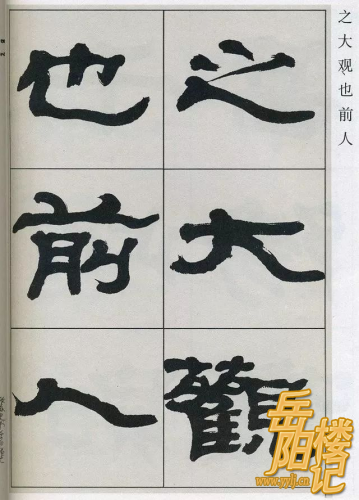 之大观、也前人
之大觀
也前人
岳阳楼记
www.yylj.cn